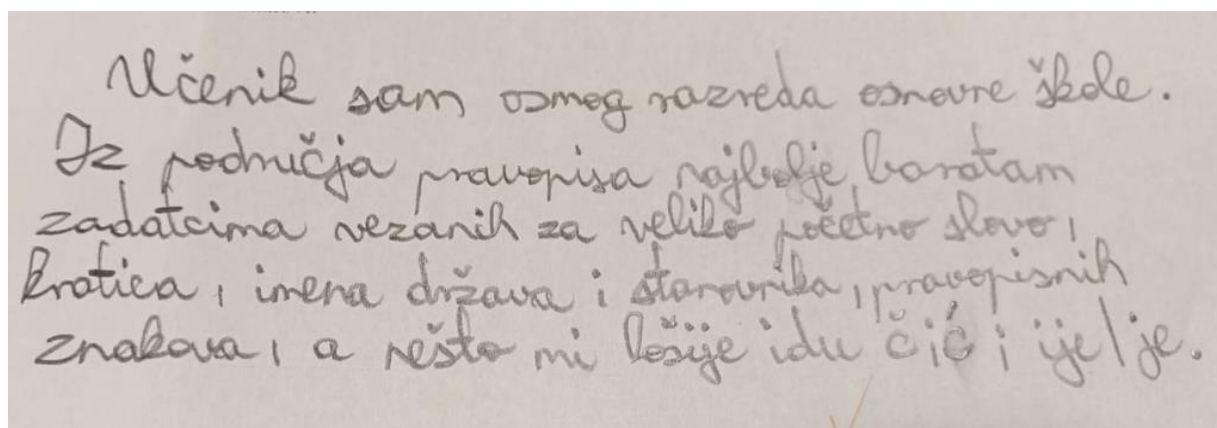 Učenik sam osmog razreda osnovne škole.
Iz područja pravopisa najbolje baratam
zadatcima vezanih za veliko početno slovo,
kratica, imena država i stanovnika, pravopisnih
znakova, a nešto mi lošije idu č i ć i ije/je.